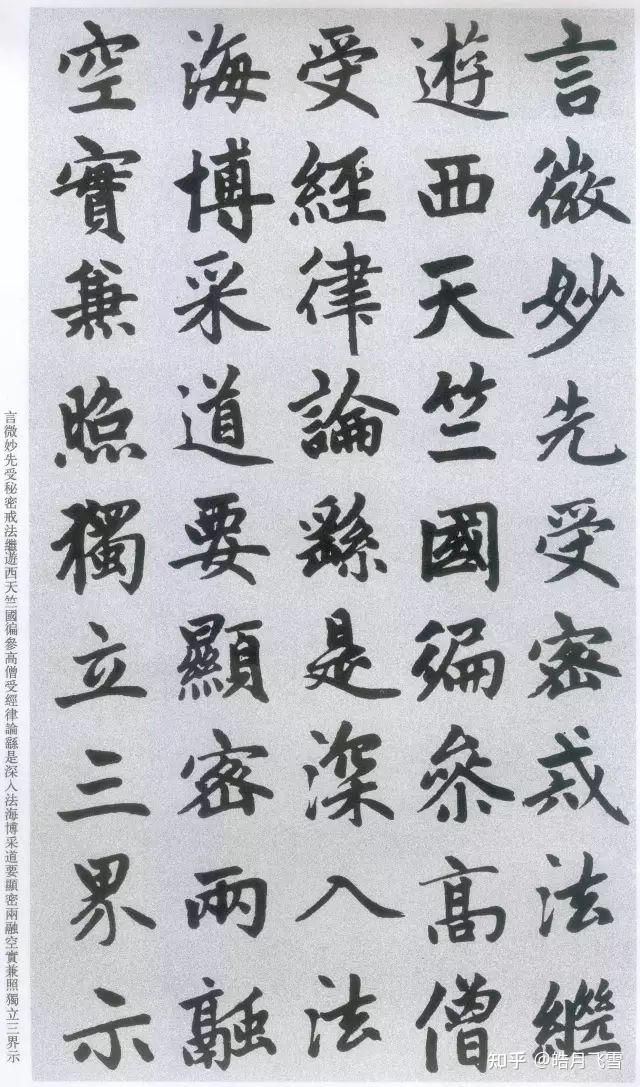 言微妙先受密戒法繼
遊西天竺國徧參高僧
受經律論繇是深入法
海博采道要顯密兩融
空實兼照獨立三界示
言微妙先受秘密戒法繼遊西天竺國徧參高僧受經律論繇是深入法海博采道要顯密兩融空實兼照獨立三界示
知乎 @皓月飞雪